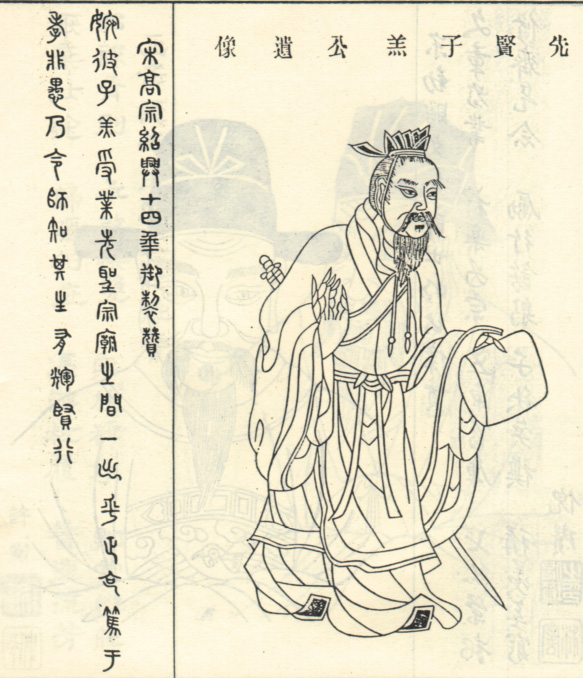 先賢子羔公遺像
宋高宗紹興十四年御製贊
婉彼子羔受業先聖宗廟之間一出乎正克篤于
孝非愚乃令師知其生有煇賢行